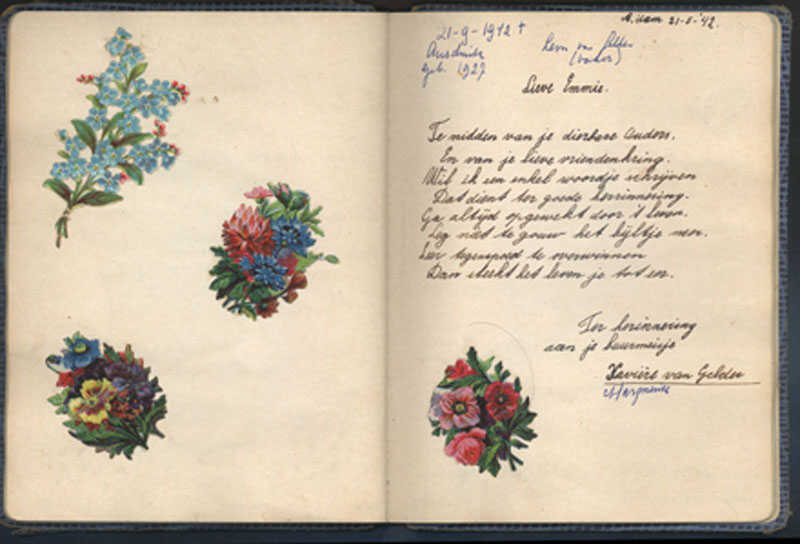 A.dam 21-5-'42.
21-9-1942 †
Auschwitz
geb. 1927
van Gelder
(vader)
Lieve Emmie.
Te midden van je dierbere Ouders.
En van je lieve vriendenkring.
Wil ik een enkel woordje schrijven
Dat dient ter goede herrinnering.
Ga altijd opgewekt door 't leven.
Leg niet te gouw het bijltje neer.
Leer tegenspoed te overwinnen
Dan strekt het leven je tot eer.
Ter herinnering
aan je buurmeisje
Xavière van Gelder